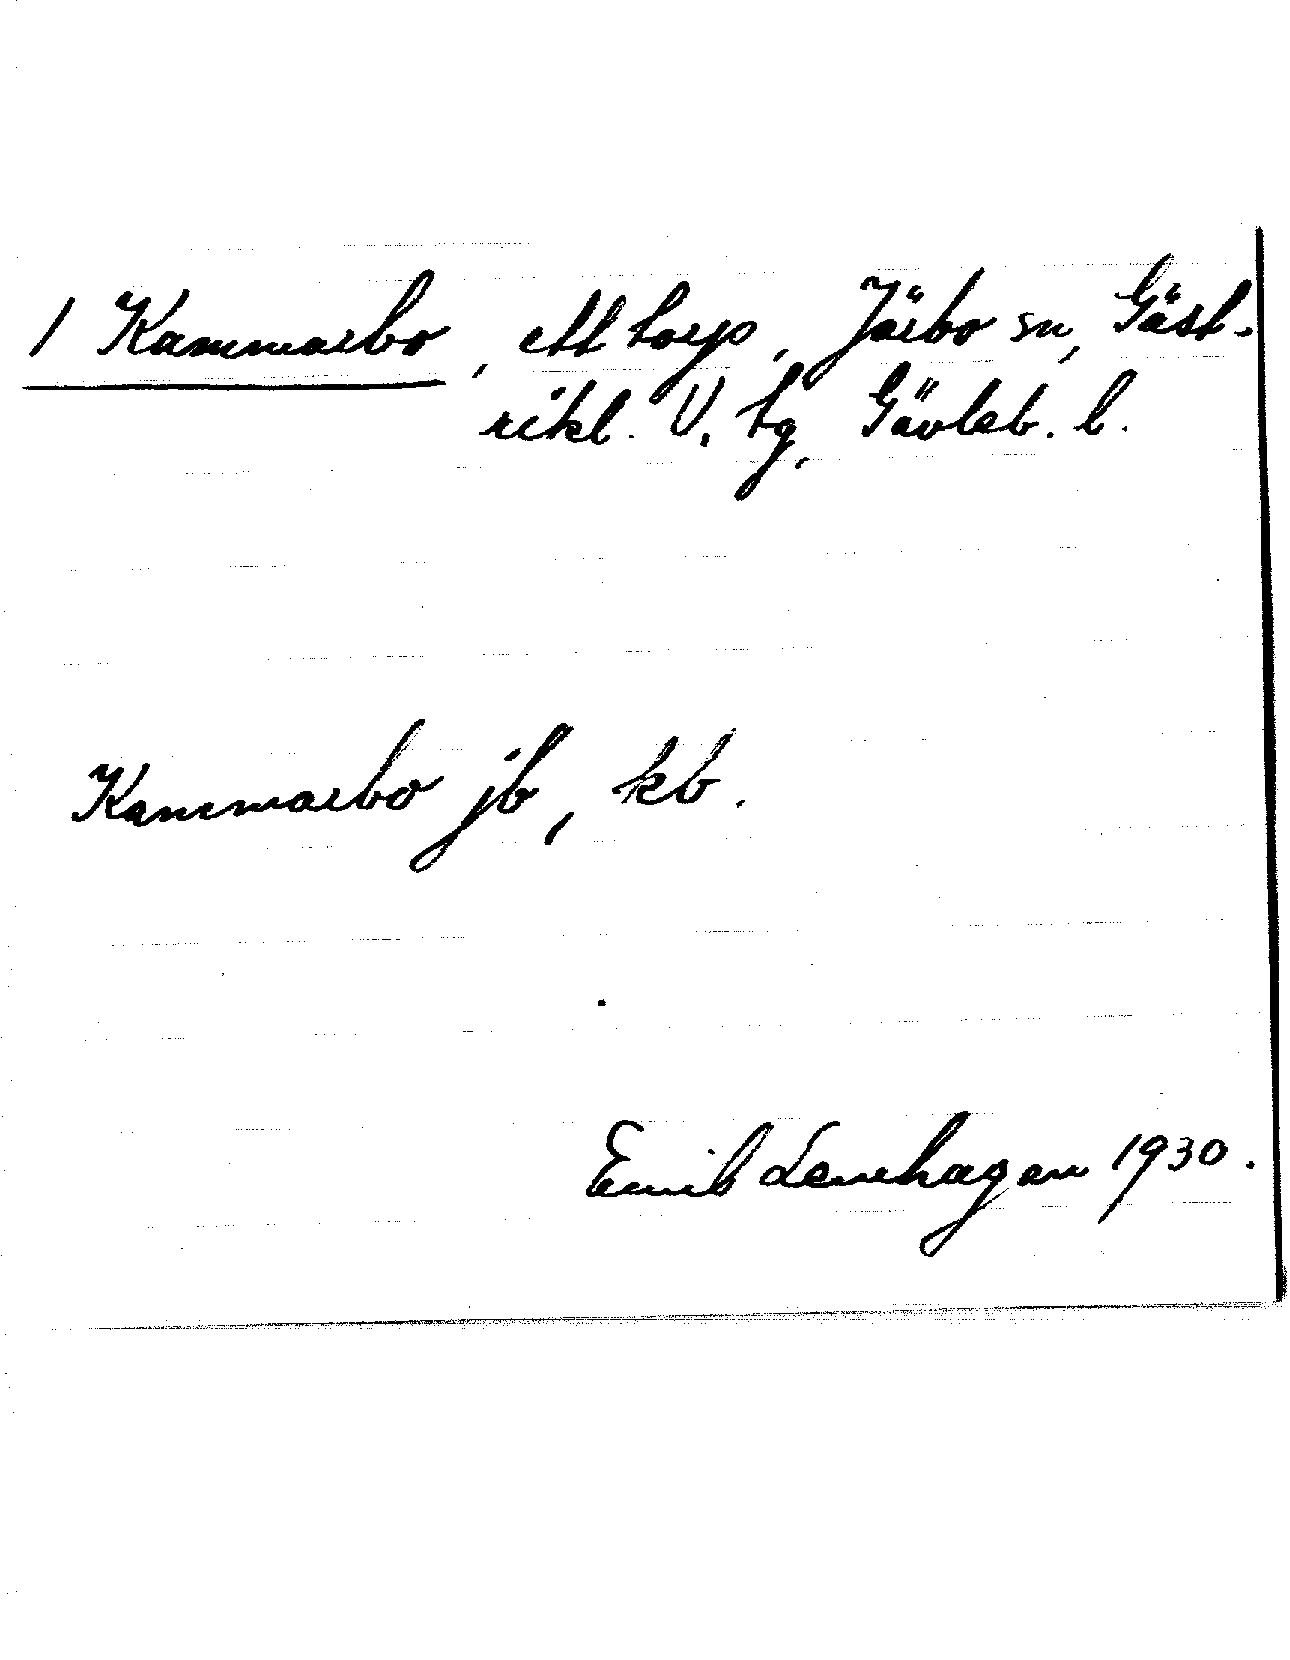 1 Kammarbo, ett torp, Järbo sn, Gäst-
rikl. V. tg, Gävleb. l.
Kammarbo jb, kb.
Emil Lenhagen 1930.